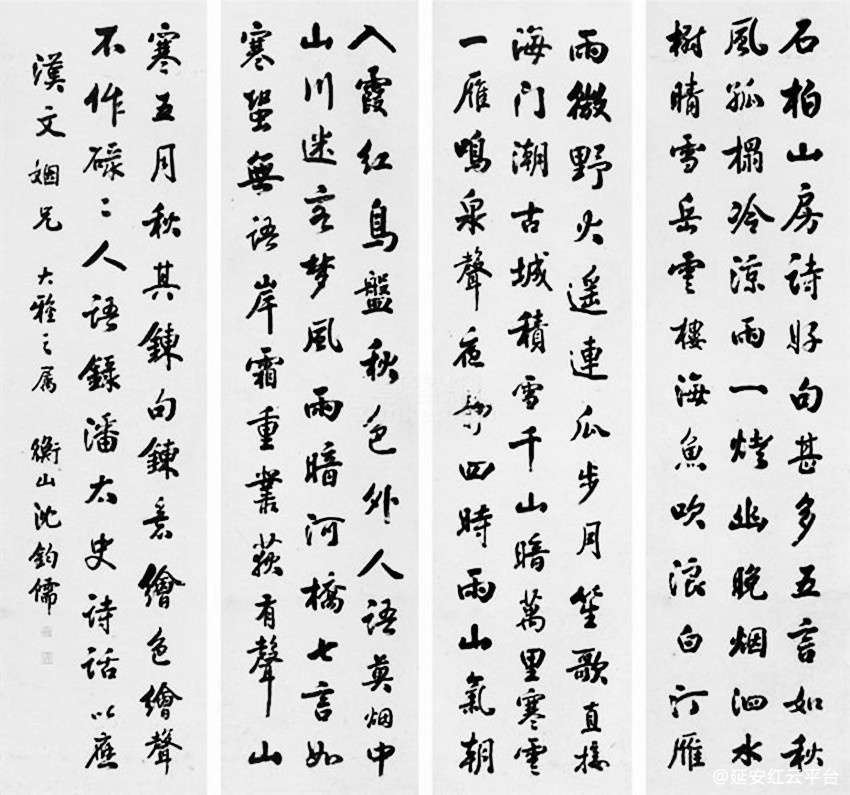 石柏山房詩好句甚多五言如秋
風孤榻冷涼雨一燈幽晚烟泗水
樹晴雪岳雲樓海魚吹浪白汀雁
雨微野火遥連瓜步月笙歌直接
海门潮古城積雪千山暗萬里寒雲
一雁鳴泉聲夜静四時雨山氣朝
入霞红鳥盤秋色外人語莫烟中
山川迷客梦風雨暗河橋七言如
寒蛩無語岸霜重叢荻有聲山
寒五月秋其鍊句鍊意繪色繪聲
不作碌〻人語錄潘太史詩話以應
漢文姻兄 大雅之属 衡山沈鈞儒
@延安红云平台